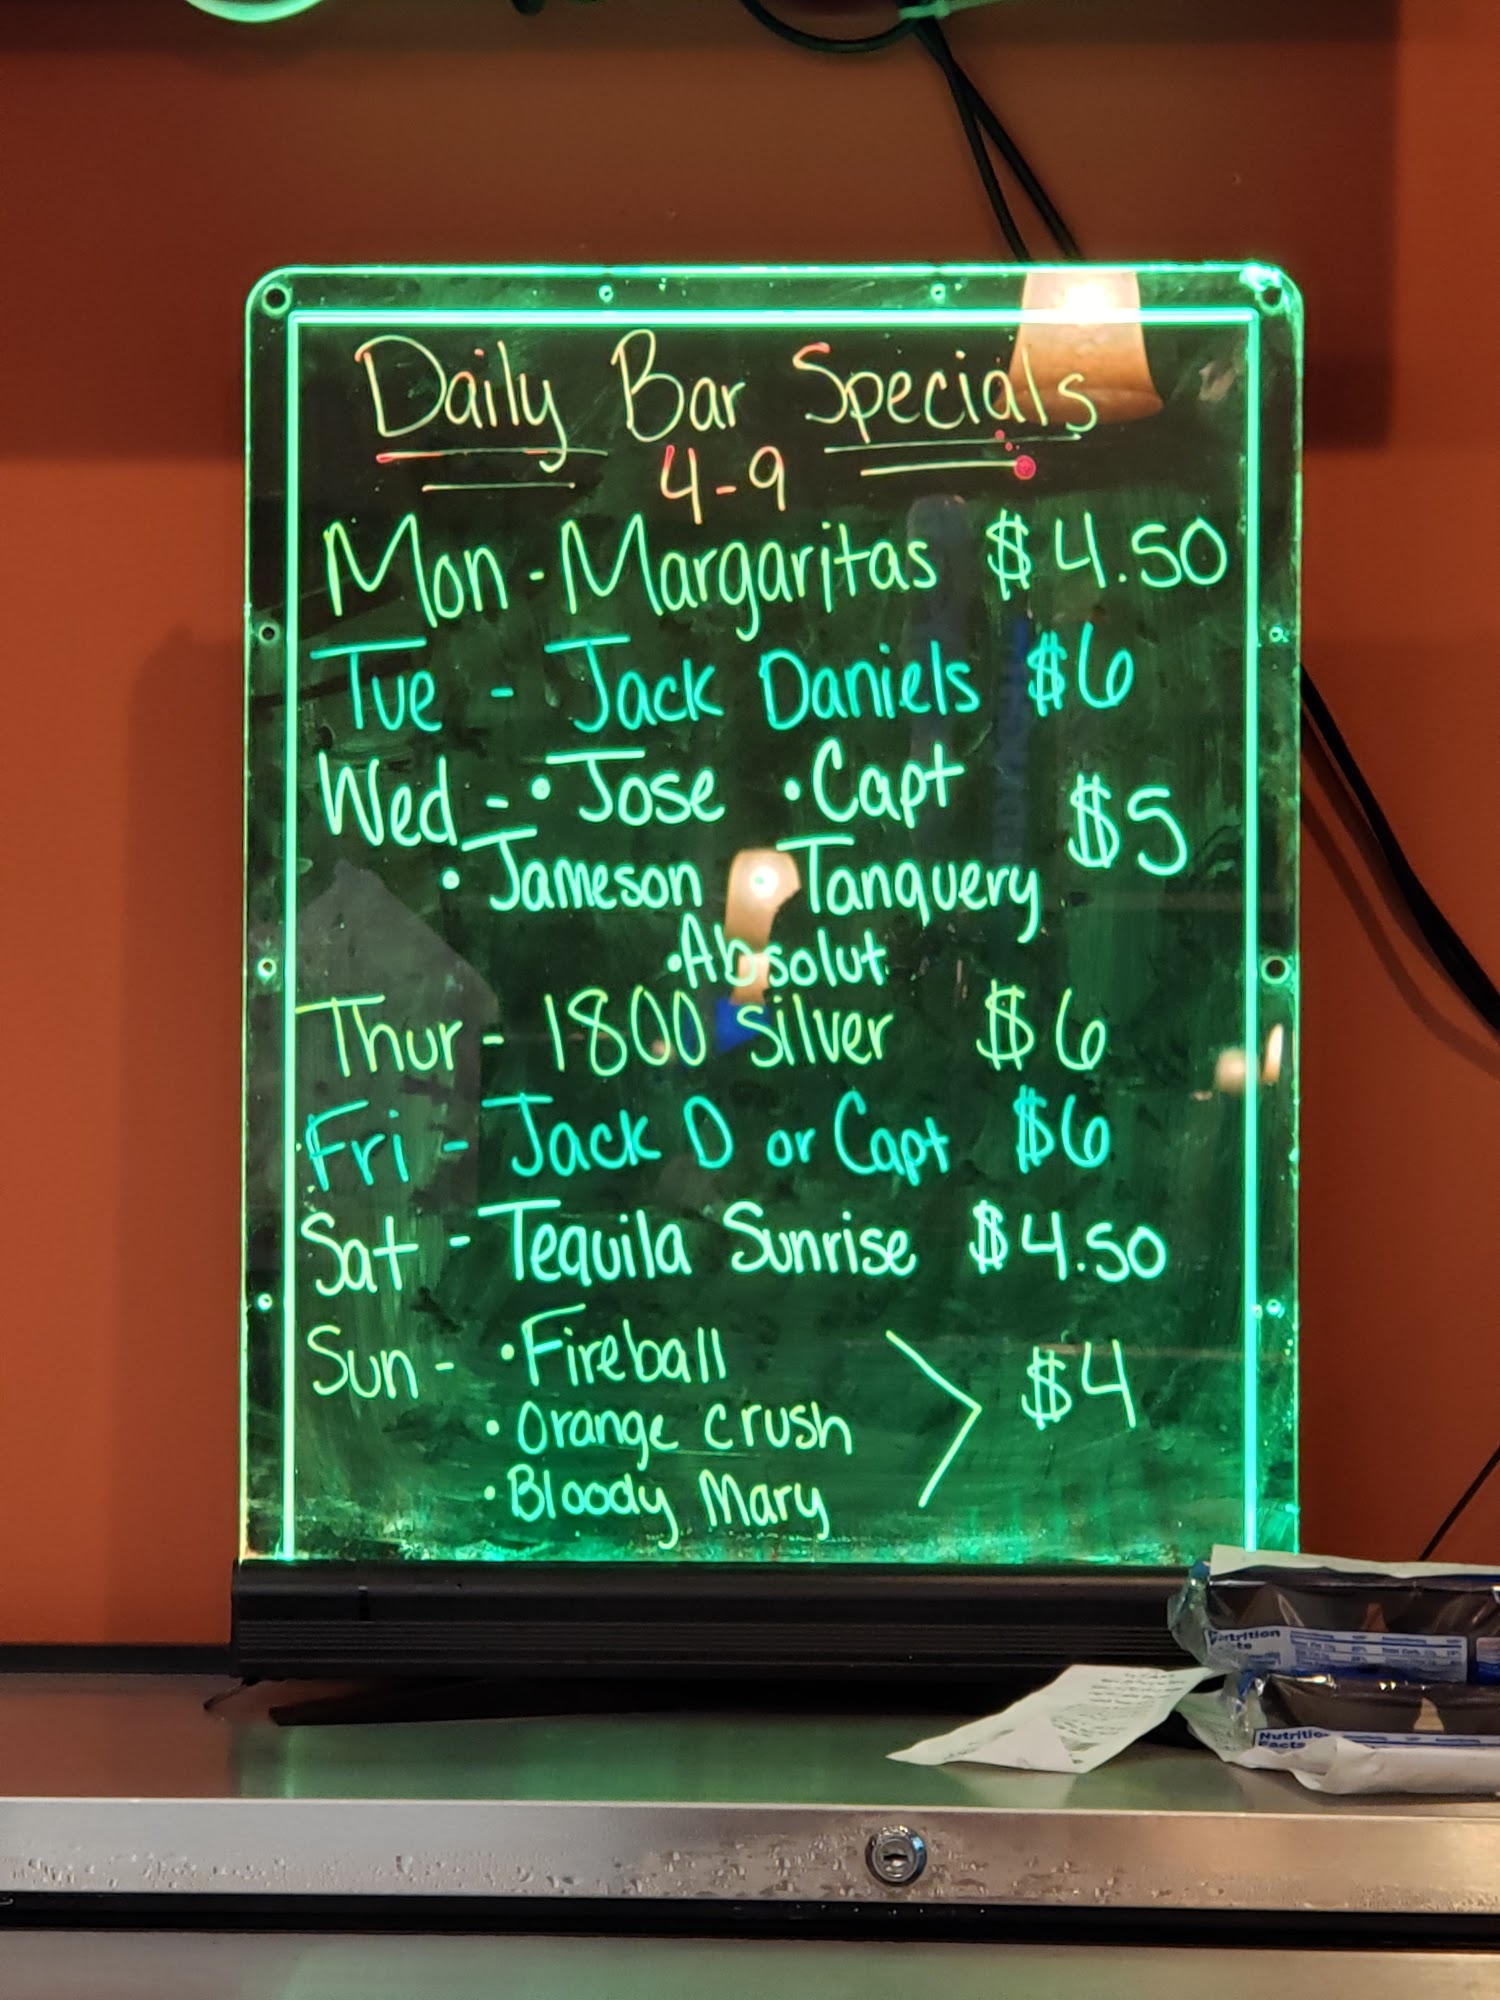 Daily Bar Specials
4-9
Mon - Margaritas $4.50
Tue - Jack Daniels $6
Wed - • Jose • Capt $5
• Jameson • Tanquery
• Absolut
Thur - 1800 silver $6
Fri - Jack D or Capt $6
Sat - Tequila Sunrise $4.50
Sun - • Fireball
• Orange Crush $4
• Bloody Mary
Nutrition
Facts
Nutrition
Facts